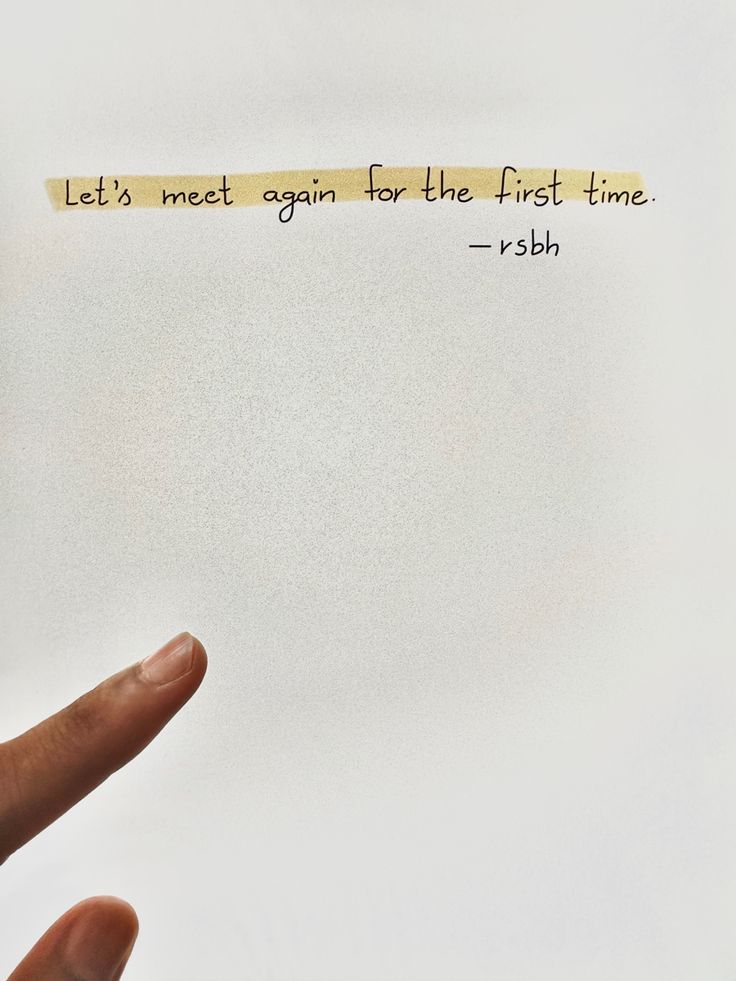 Let's meet again for the first time.
—rsbh